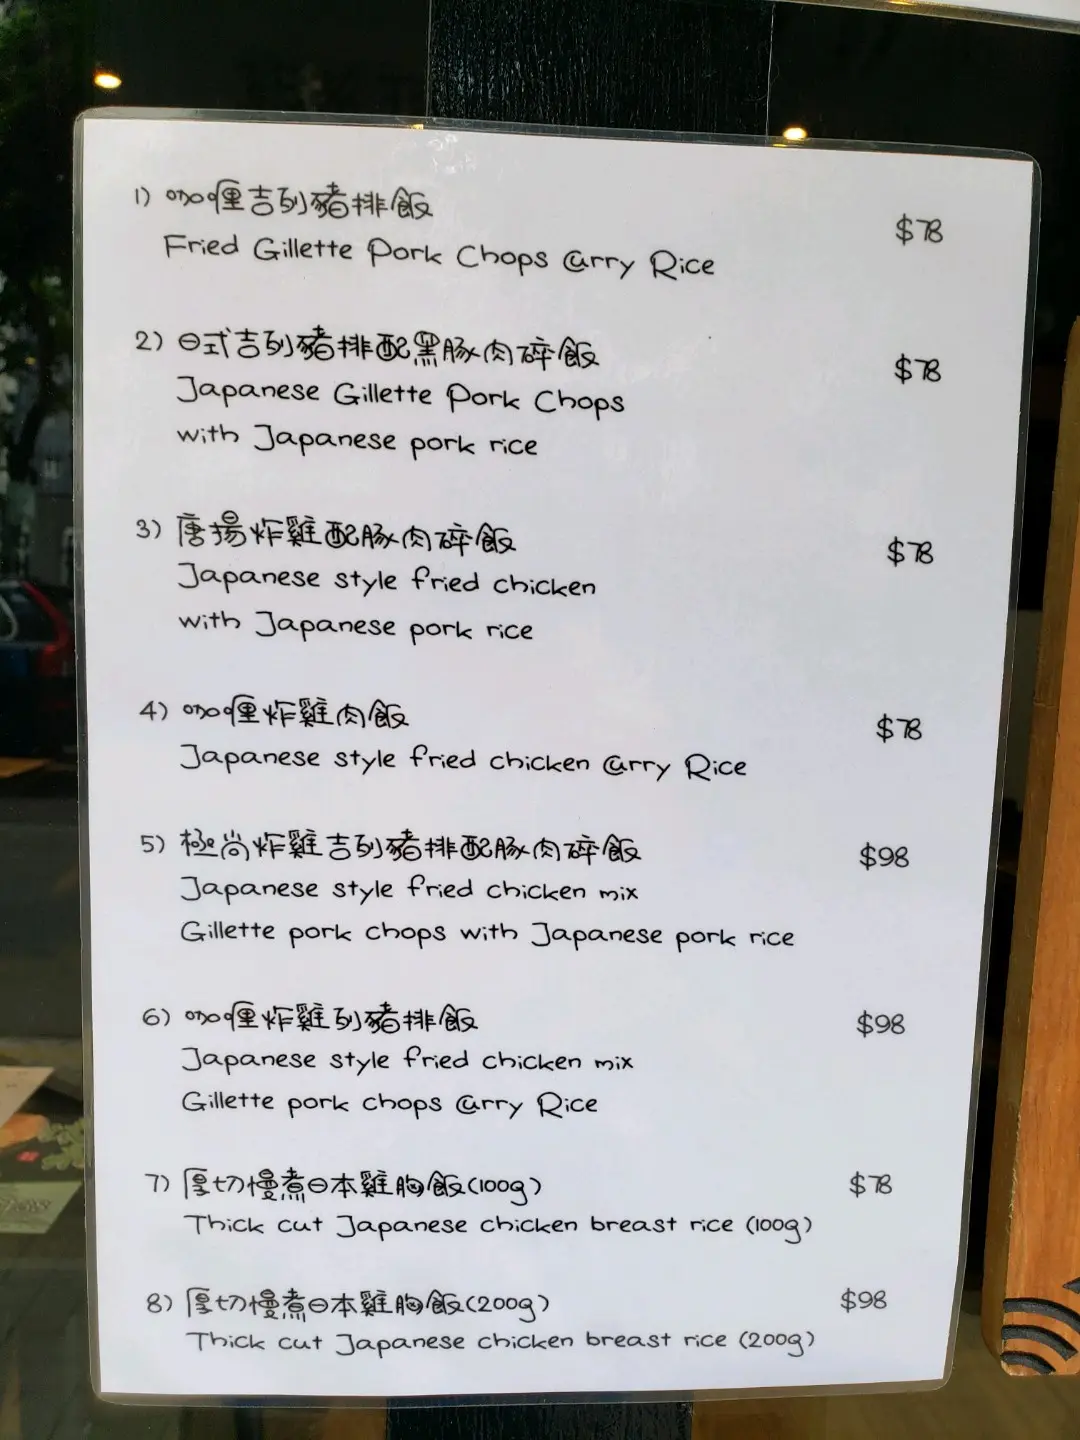 1) 咖喱吉列豬排飯 $78
Fried Gillette Pork Chops Curry Rice
2) 日式吉列豬排配黑豚肉碎飯 $78
Japanese Gillette Pork Chops
with Japanese pork rice
3) 唐揚炸雞配豚肉碎飯 $78
Japanese style fried chicken
with Japanese pork rice
4) 咖喱炸雞肉飯 $78
Japanese style fried chicken Curry Rice
5) 極尚炸雞吉列豬排配豚肉碎飯 $98
Japanese style fried chicken mix
Gillette pork chops with Japanese pork rice
6) 咖喱炸雞列豬排飯 $98
Japanese style fried chicken mix
Gillette pork chops Curry Rice
7) 厚切慢煮日本雞胸飯(100g) $78
Thick cut Japanese chicken breast rice (100g)
8) 厚切慢煮日本雞胸飯(200g) $98
Thick cut Japanese chicken breast rice (200g)